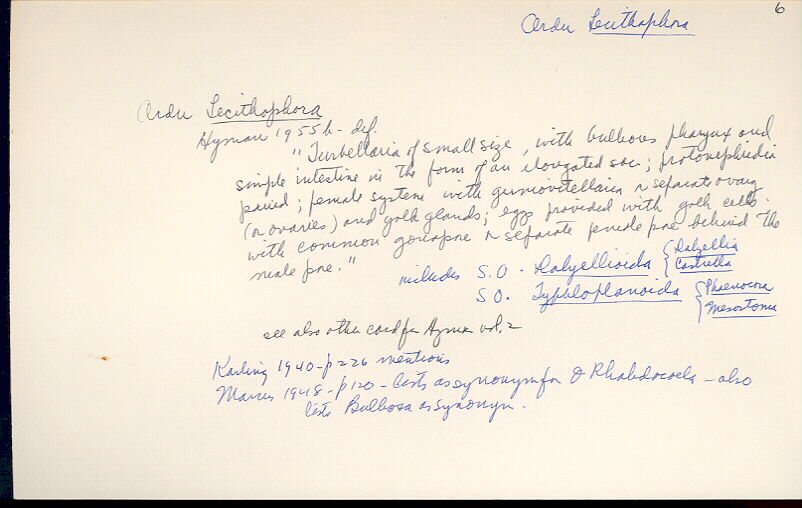 6
Order Lecithophora
Order Lecithophora
Hyman 1955b - def.
"Turbellaria of small size, with bulbous pharynx and
simple intestine in the form of an elongated sac; protonephridia
paired; female system with germovitellaria or separate ovary
(or ovaries) and yolk glands; eggs provided with yolk cells.
with common gonopore or separate female pore behind the
male pore."
includes S.O. Dalyellioida { Dalyellia
Castrella
S O. Typhloplanoida { Phaenocora
Mesostoma
see also other card for Hyman vol. 2
Karling 1940 - p 226 mentions
Marcus 1948 - p 120 - lists as synonym for O Rhabdocoela - also
lists Bulbosa as synonym.